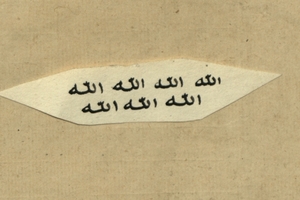 الله الله الله الله
الله الله الله